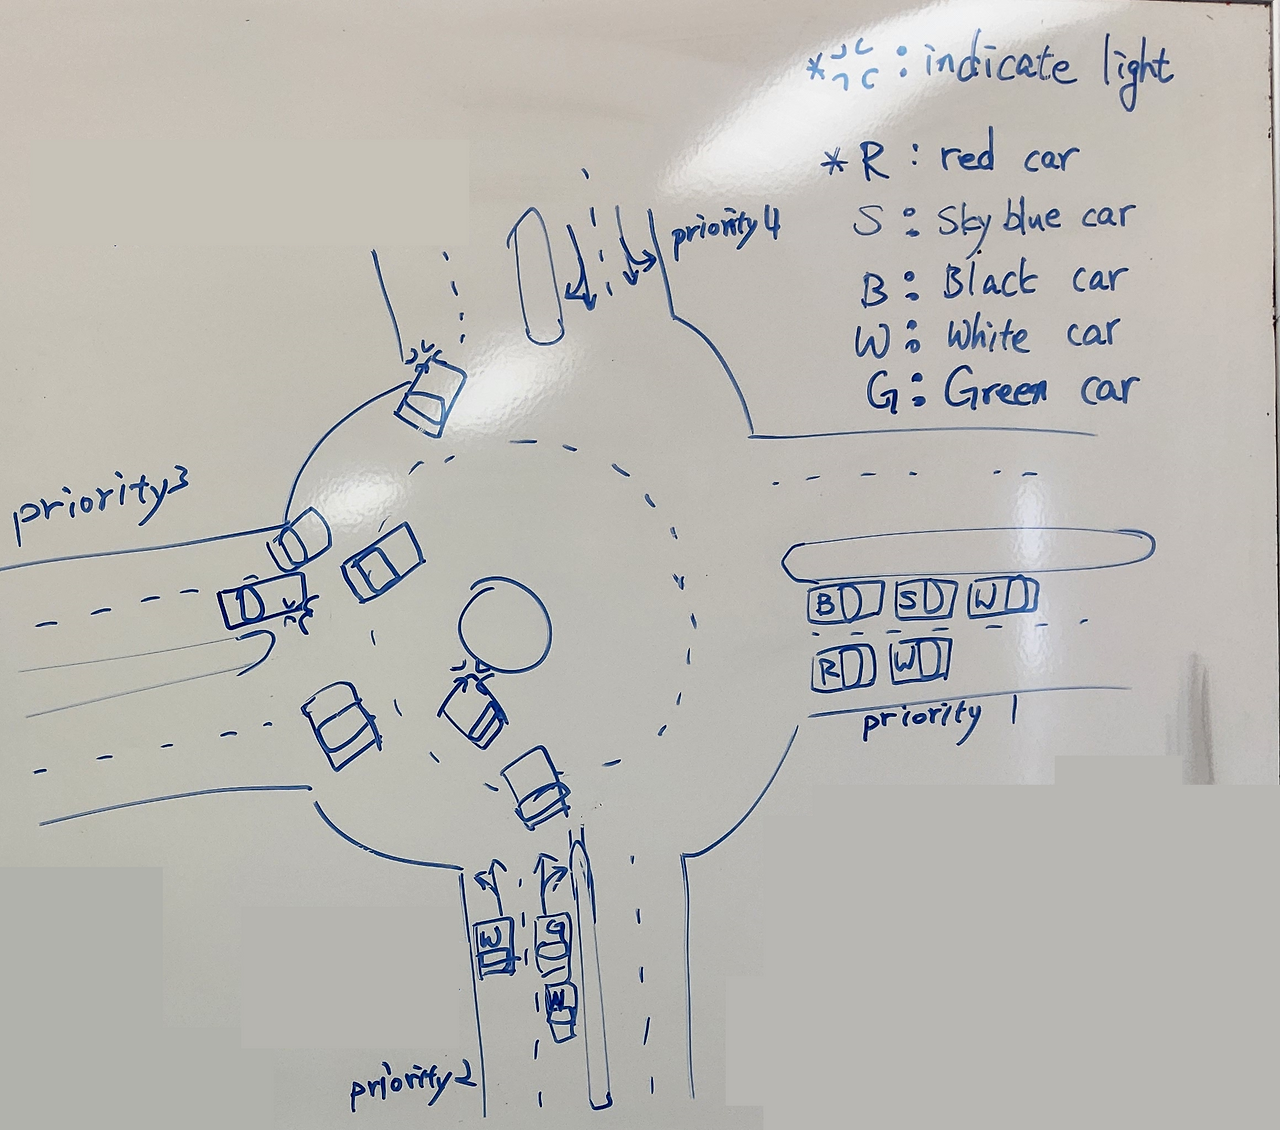 * : indicate light
* R : red car
S : Sky blue car
B : Black car
W : White car
G : Green car
priority 4
priority 3
B S W
R W
priority 1
W G
W
priority 2